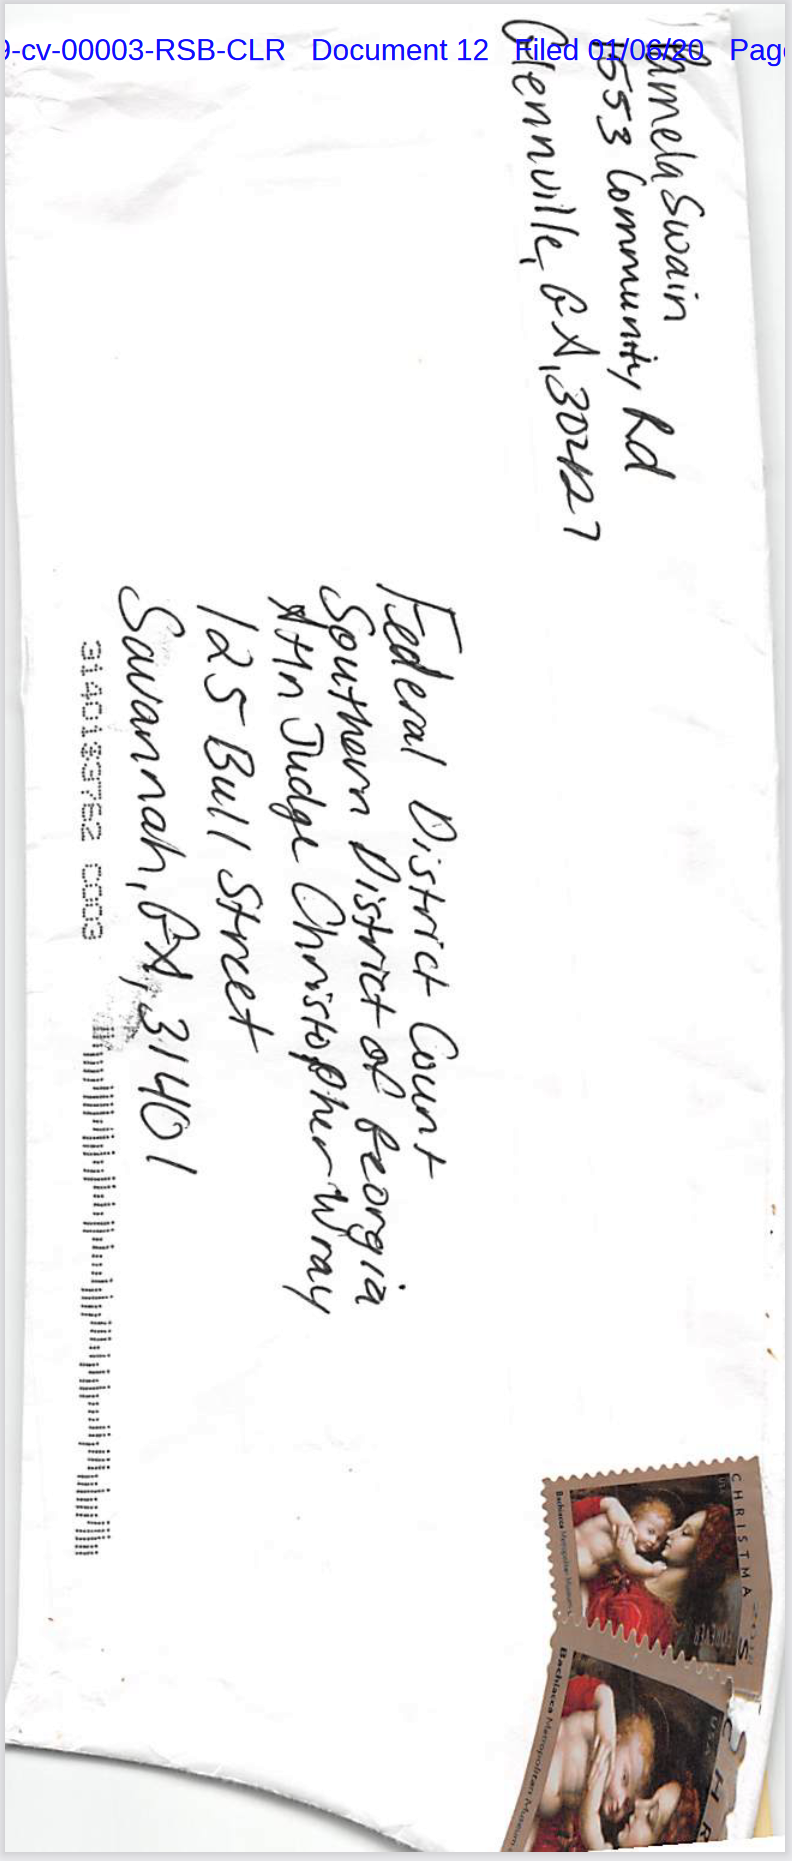 9-cv-00003-RSB-CLR Document 12 Filed 01/06/20 Page
Pamela Swain
1553 Community Rd
Glennville, GA, 30427
Federal District Court
Southern District of Georgia
Attn Judge Christopher Wray
125 Bull Street
Savannah, GA, 31401
31401$3762 C003
CHRISTMAS
USA
FOREVER
Bachiacca Metropolitan Museum
CHR
USA
Bachiacca Metropolitan Museum